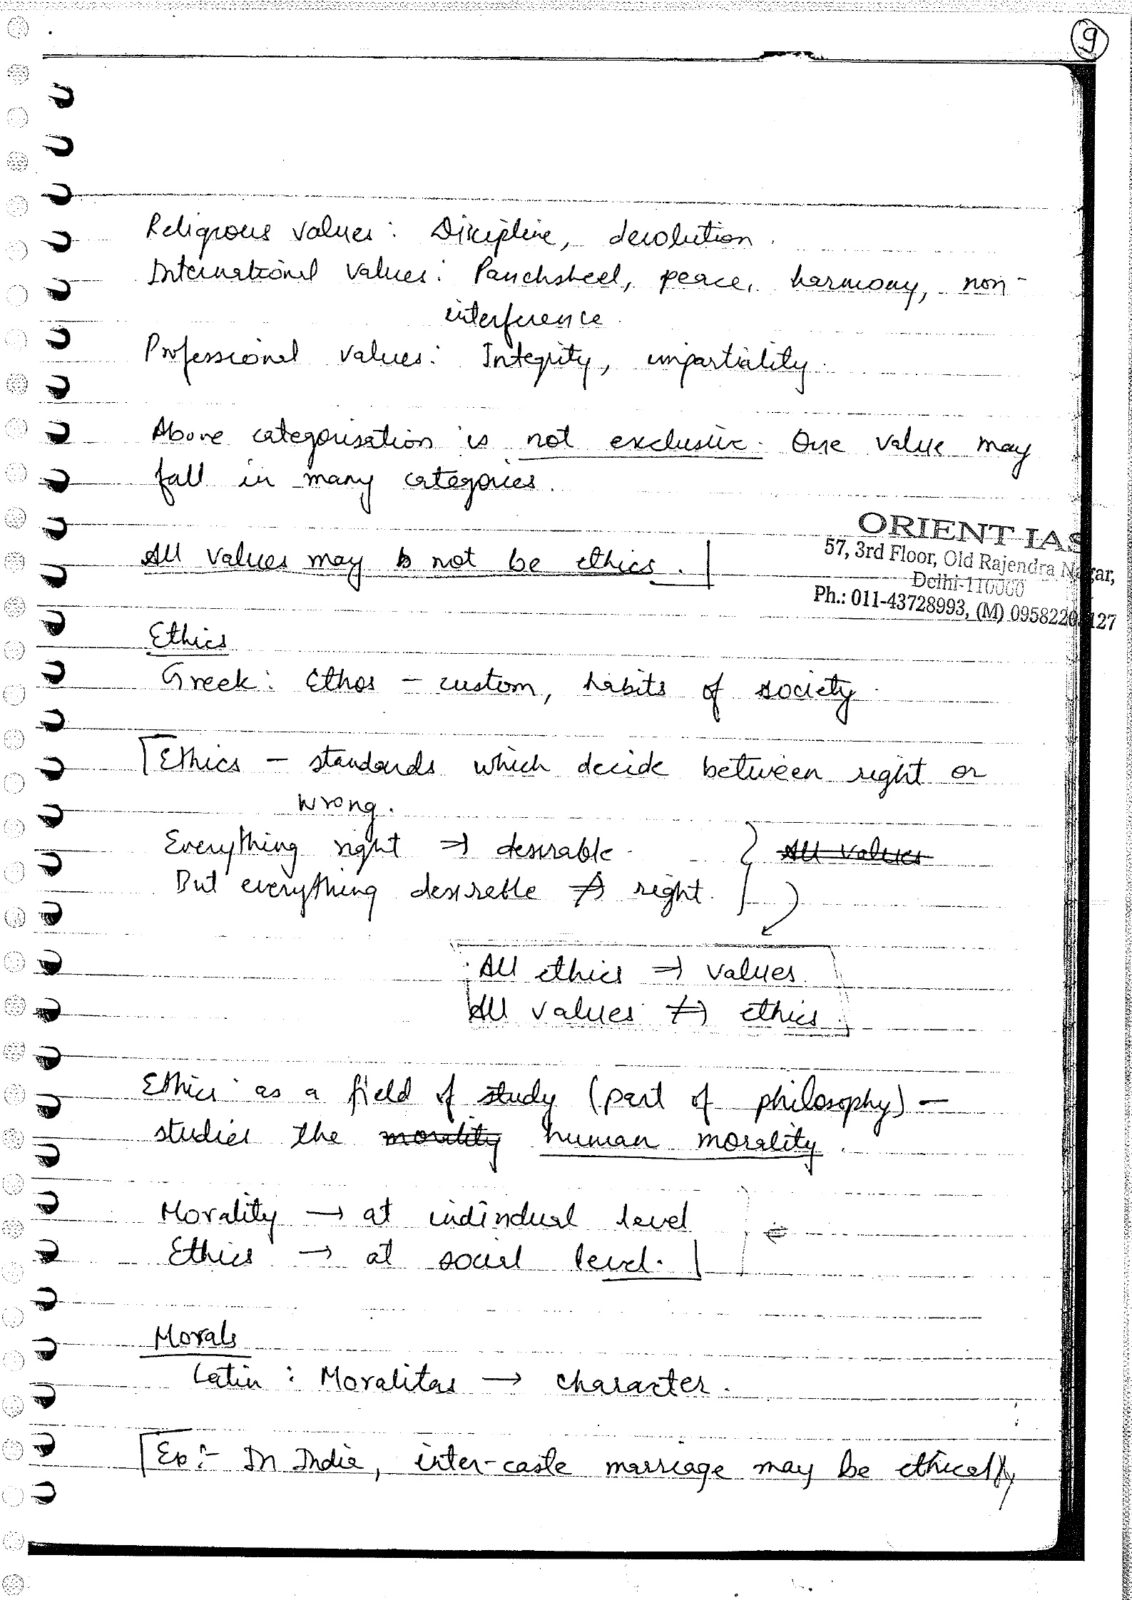 9
Religious values: Discipline, devolution.
International values: Panchsheel, peace, harmony, non-
interference.
Professional values: Integrity, impartiality.
Above categorisation is not exclusive. One value may
fall in many categories.
ORIENT IAS
57, 3rd Floor, Old Rajendra Nagar,
Delhi-110060
Ph.: 011-43728993, (M) 0958220 127
All values may b not be ethics.
Ethics
Greek: Ethos - custom, habits of society.
Ethics - standards which decide between right or
wrong.
Everything right ⇒ desirable.
All values
But everything desireble ⇏ right.
All ethics ⇒ values
All values ⇏ ethics.
Ethics as a field of study (part of philosophy) -
studies the morality human morality.
Morality → at individual level
Ethics → at social level.
Morals
Latin: Moralitas → character.
Ex:- In India, inter-caste marriage may be ethically